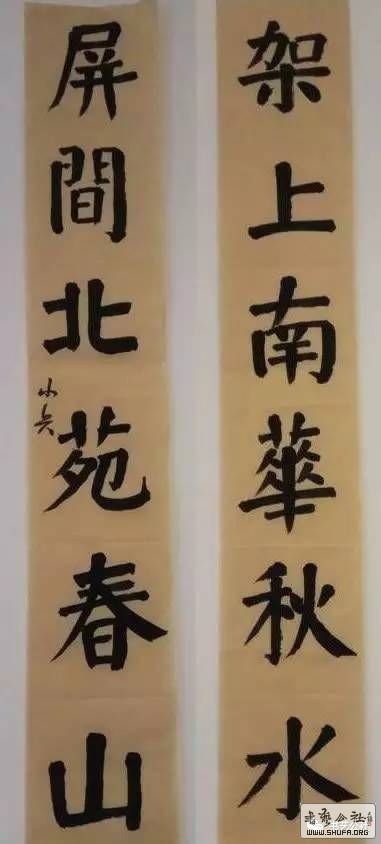 架上南華秋水
屏間北苑春山
小兵
書法公社
WWW.SHUFA.ORG